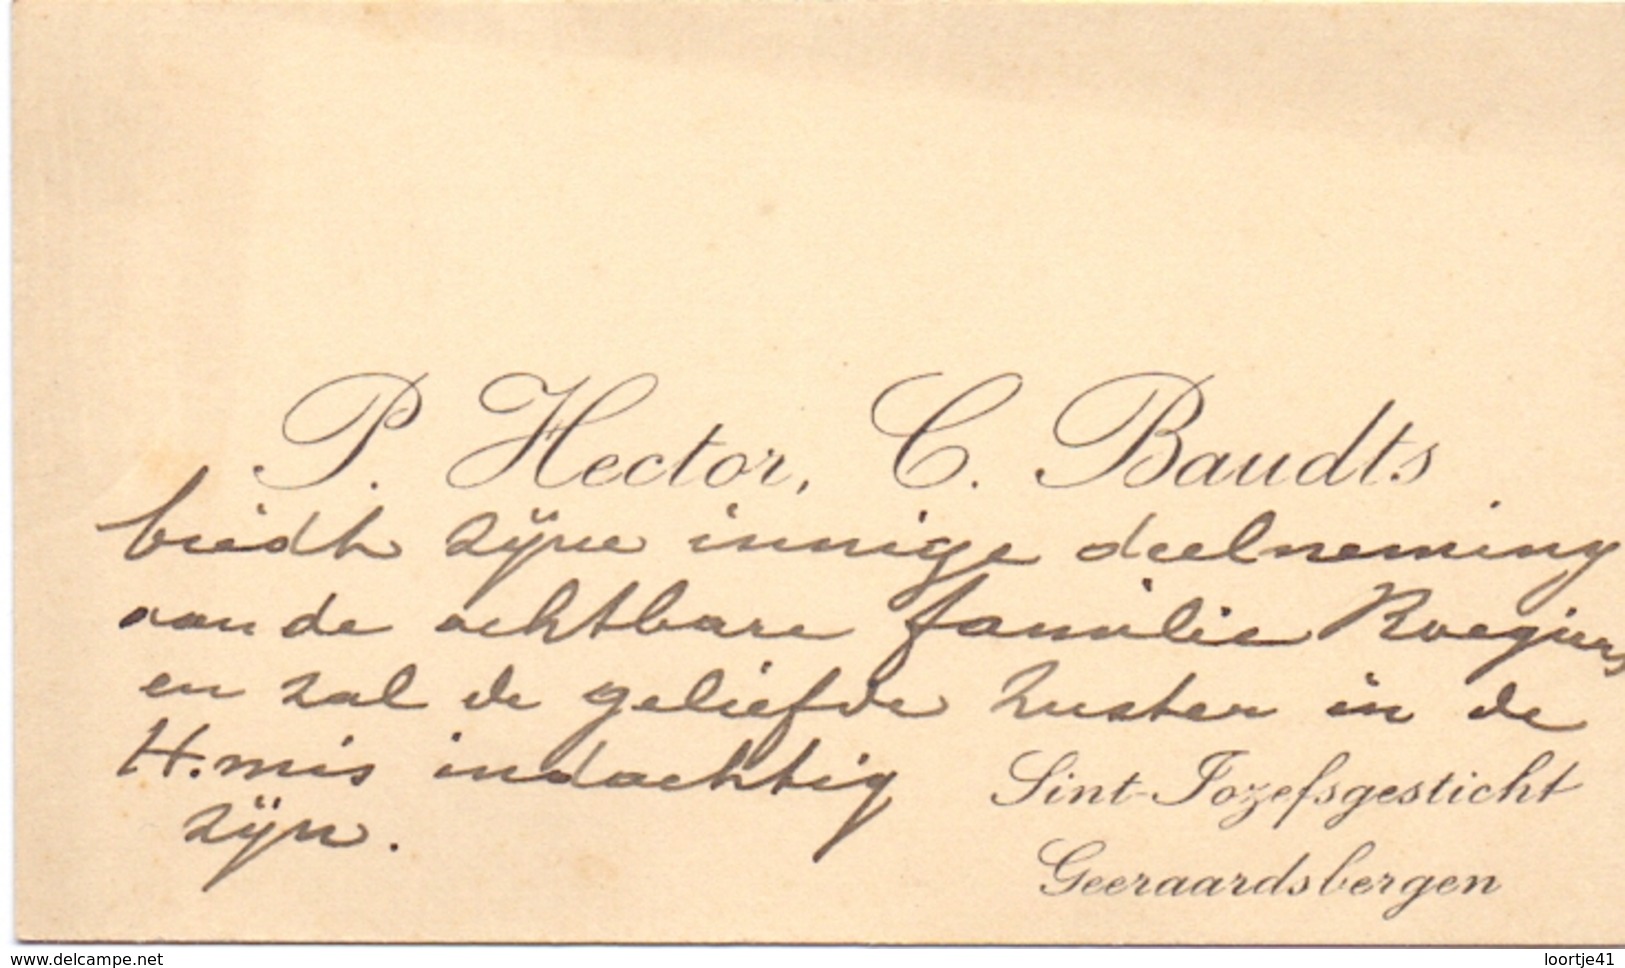 P. Hector, C. Baudts
biedt zijne innige deelneming
aan de achtbare familie Roegiers
en zal de geliefde zuster in de
H. mis indachtig
zijn.
Sint-Jozefsgesticht
Geeraardsbergen
www.delcampe.net
loortje41